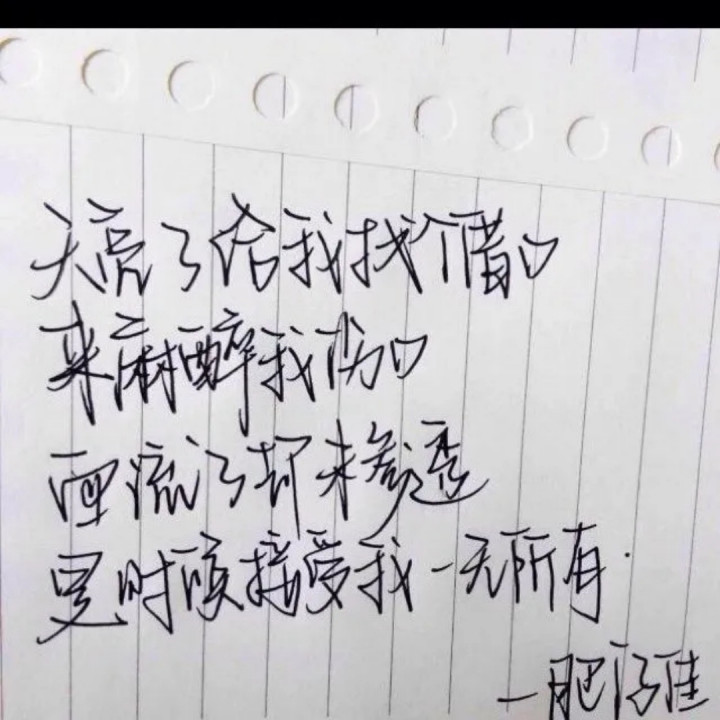 天亮了给我找个借口
来麻醉我伤口
血流了却未参透
是时候接受我一无所有.
—肥仔佳